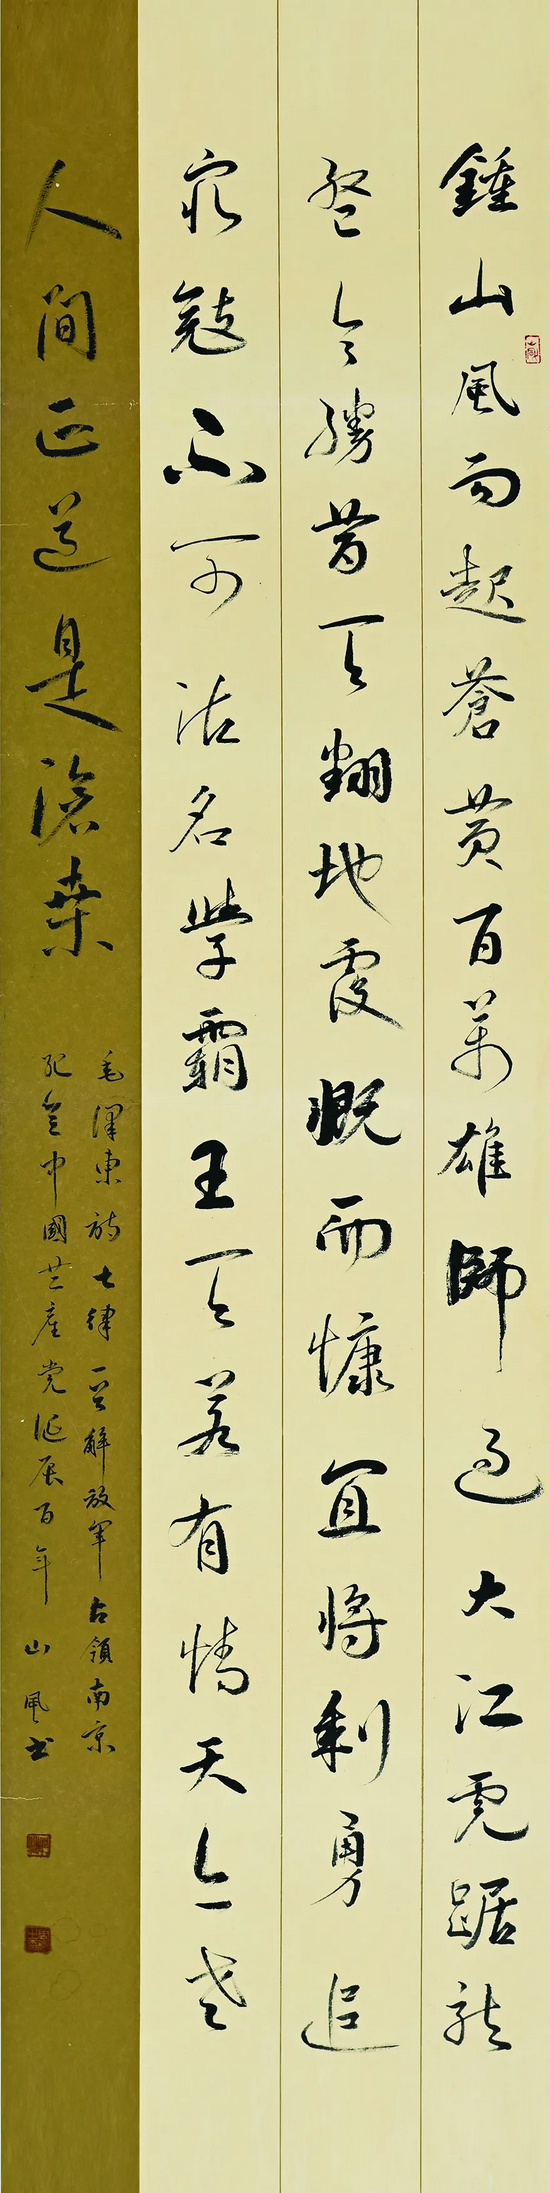 鍾山風雨起蒼黃百萬雄師過大江虎踞龍
盤今勝昔天翻地覆慨而慷宜將剩勇追
窮寇不可沽名學霸王天若有情天亦老
人間正道是滄桑
毛澤東詩七律人民解放軍占領南京
紀念中國共產党诞辰百年 山風书